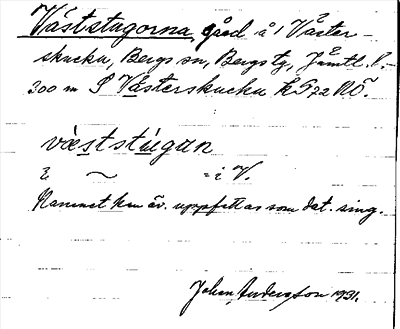 Väststugorna, gård å 1 Väster-
skucku, Bergs sn, Bergs tg, Jämtl. l.
300 m S Västerskucku hp 72 NÖ.
væststúgun
i ~ = i V.
Namnet kan äv. uppfattas som dat. sing.
Johan Andersson 1931.